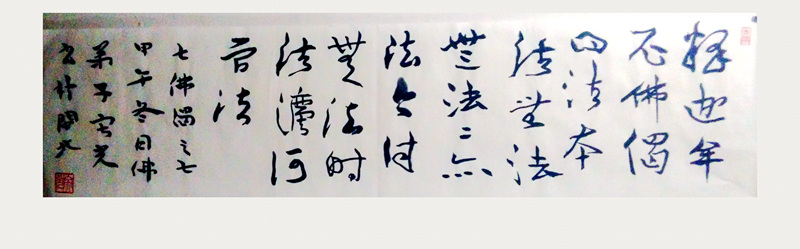 釋迦牟
尼佛偈
曰法本
法無法
無法々亦
法今付
無法時
法灋何
曾法
七佛偈之七
甲午冬日佛
弟子光